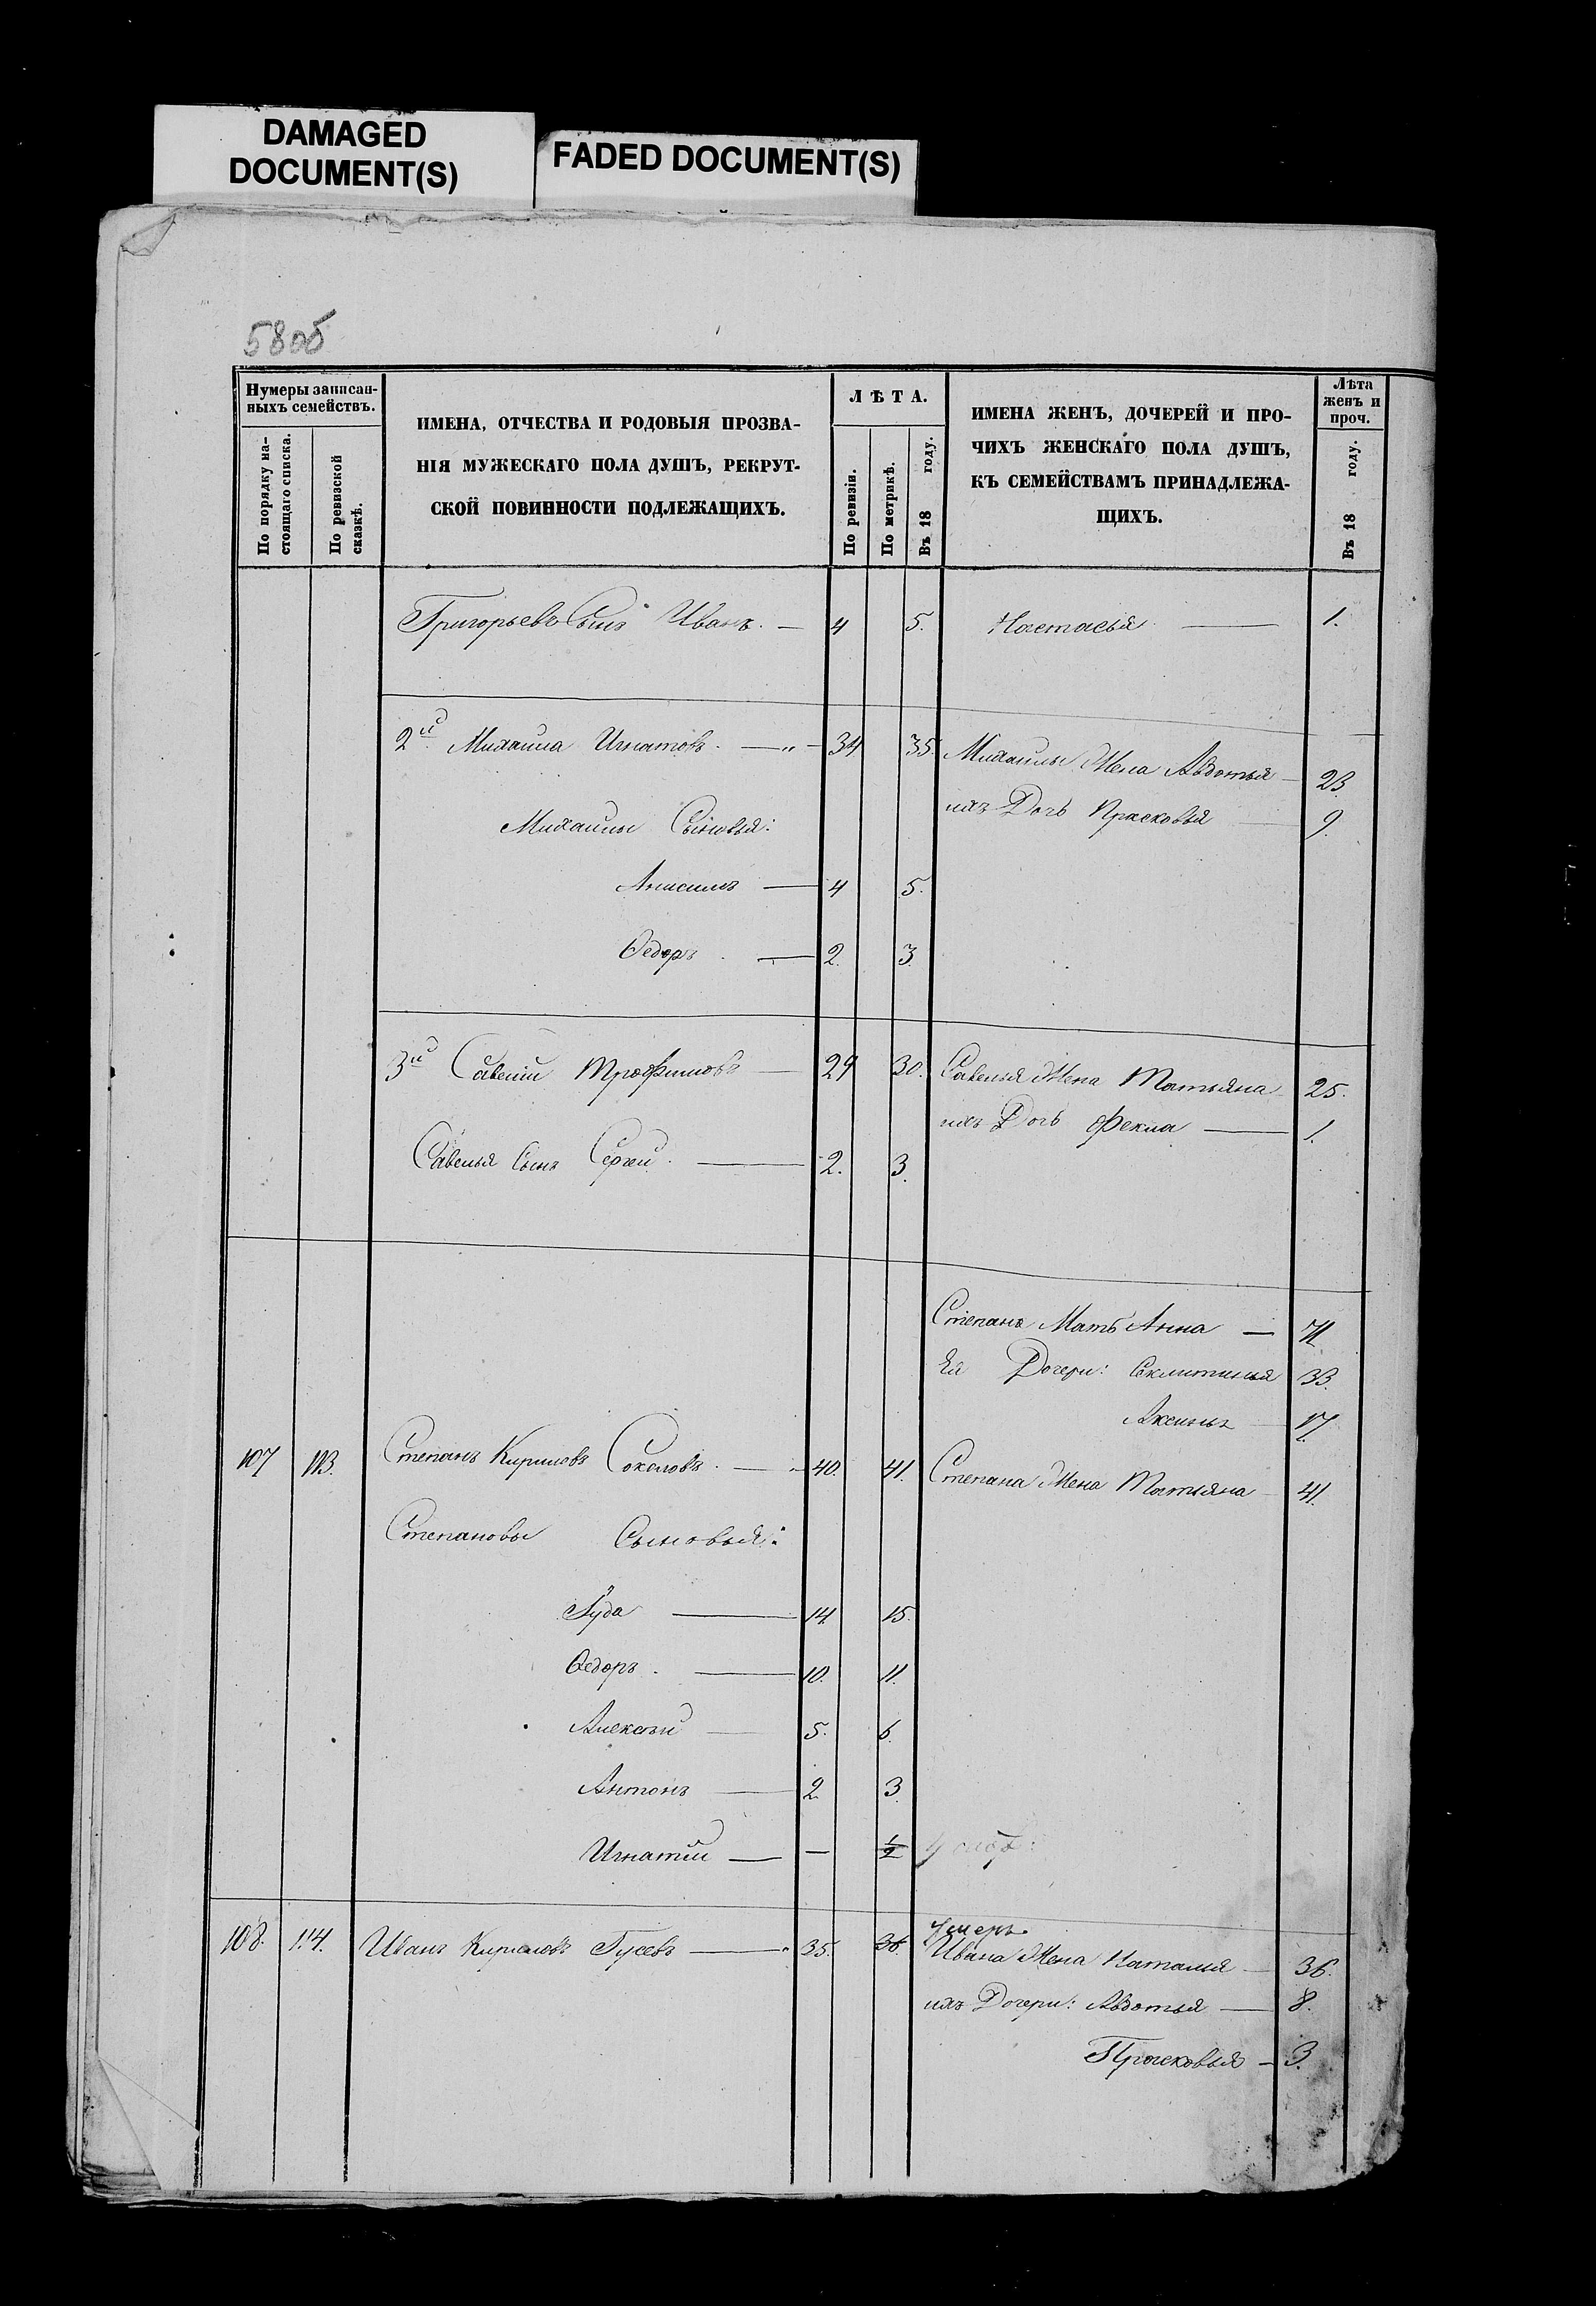 DAMAGED
DOCUMENT(S)
FADED DOCUMENT(S)
58об
Нумеры записан-
ныхъ семействъ.
По порядку на-
стоящаго списка.
По ревизской
сказкѣ.
ИМЕНА, ОТЧЕСТВА И РОДОВЫЯ ПРОЗВА-
НІЯ МУЖЕСКАГО ПОЛА ДУШЪ, РЕКРУТ-
СКОЙ ПОВИННОСТИ ПОДЛЕЖАЩИХЪ.
ЛѢТА.
По ревизіи.
По метрикѣ.
Въ 18 году.
ИМЕНА ЖЕНЪ, ДОЧЕРЕЙ И ПРО-
ЧИХЪ ЖЕНСКАГО ПОЛА ДУШЪ,
КЪ СЕМЕЙСТВАМЪ ПРИНАДЛЕЖА-
ЩИХЪ.
Лѣта
женъ и
проч.
Въ 18 году.
Григорьевъ Сынъ Иванъ. — 4 5. Настасья — 1.
2й Михаила Игнатовъ. — 34 35. Михаилы Жена Авдотья — 23.
ихъ Дочь Прасковья — 9.
Михаилы Сыновья:
Анисимъ — 4 5.
Ѳедоръ. — 2. 3.
3й Савелій Трофимовъ — 29 30. Савелья Жена Татьяна 25.
ихъ Дочь Фекла — 1.
Савелья Сынъ Сергей. — 2. 3.
Степана Мать Анна — 71
Ея Дочери: Секлитинья 33.
Аксинья — 17.
107 113. Степанъ Кириловъ Соколовъ. — 40. 41. Степана Жена Татьяна — 41.
Степановы Сыновья:
Іуда — 14. 15.
Ѳедоръ. — 10. 11.
Алексѣй — 5. 6.
Антонъ — 2. 3.
Игнатій — — 1/2
108. 114. Иванъ Кириловъ Гусевъ — 35. 36. Умеръ.
Ивана Жена Наталья — 36.
ихъ Дочери: Авдотья — 8.
Прасковья — 3.